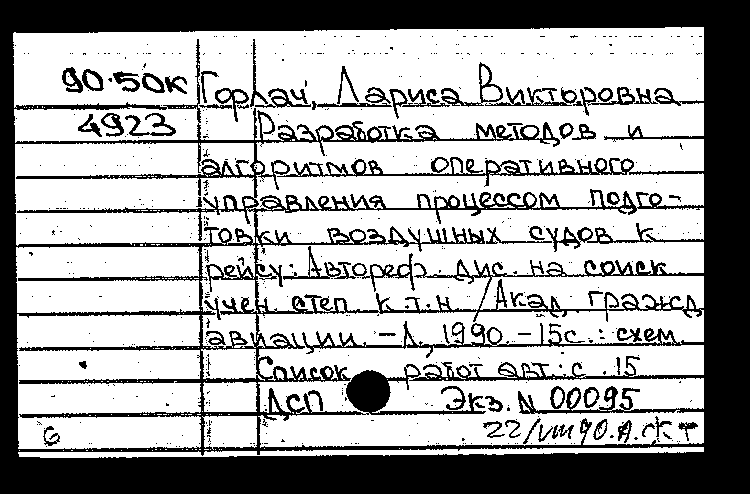 90-50к Горлач, Лариса Викторовна
4923 Разработка методов и
алгоритмов оперативного
управления процессом подго-
товки воздушных судов к
рейсу: Автореф. дис. на соиск
учен степ к.т.н / Акад гражд
авиации. - Л., 1990. - 15с.: схем.
Список работ авт.: с. 15
ДСП Экз. N 00095
6 22/VIII 90.